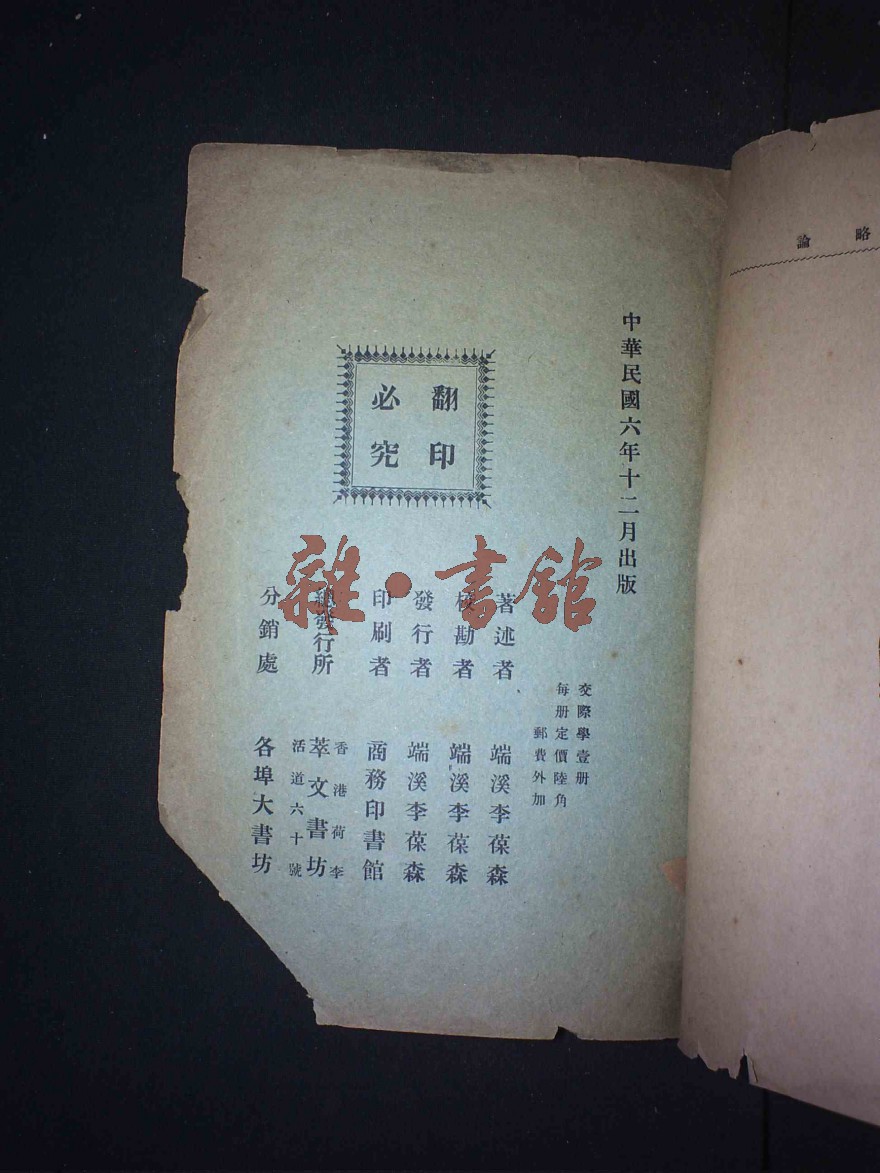 論略
中華民國六年十二月出版
翻印
必究
交際學壹册
每册定價陸角
郵費外加
著述者 端溪李葆森
校勘者 端溪李葆森
發行者 端溪李葆森
印刷者 商務印書館
總發行所 香港荷李
萃文書坊
活道六十號
分銷處 各埠大書坊
雜·書館